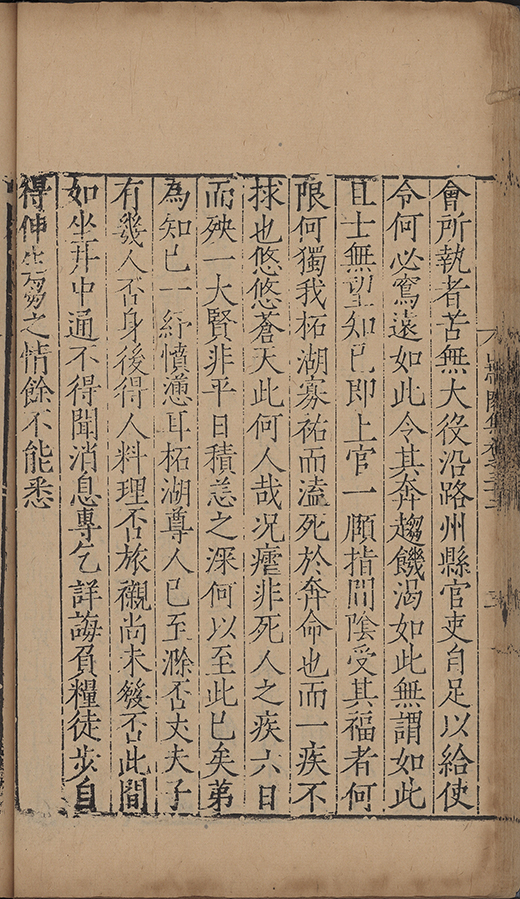 會所執者苦無大役沿路州縣官吏自足以給使
令何必騖遠如此令其奔趨饑渴如此無謂如此
且士無望知已即上官一頤指間陰受其福者何
限何獨我柘湖寡祐而溘死於奔命也而一疾不
捄也悠悠蒼天此何人哉况瘧非死人之疾六日
而殃一大賢非平日積恙之深何以至此已矣弟
為知已一紓憤懣耳柘湖尊人已至滁否丈夫子
有幾人否身後得人料理否旅櫬尚未發否此間
如坐井中通不得聞消息專乞詳誨負糧徒步自
得伸生芻之情餘不能悉